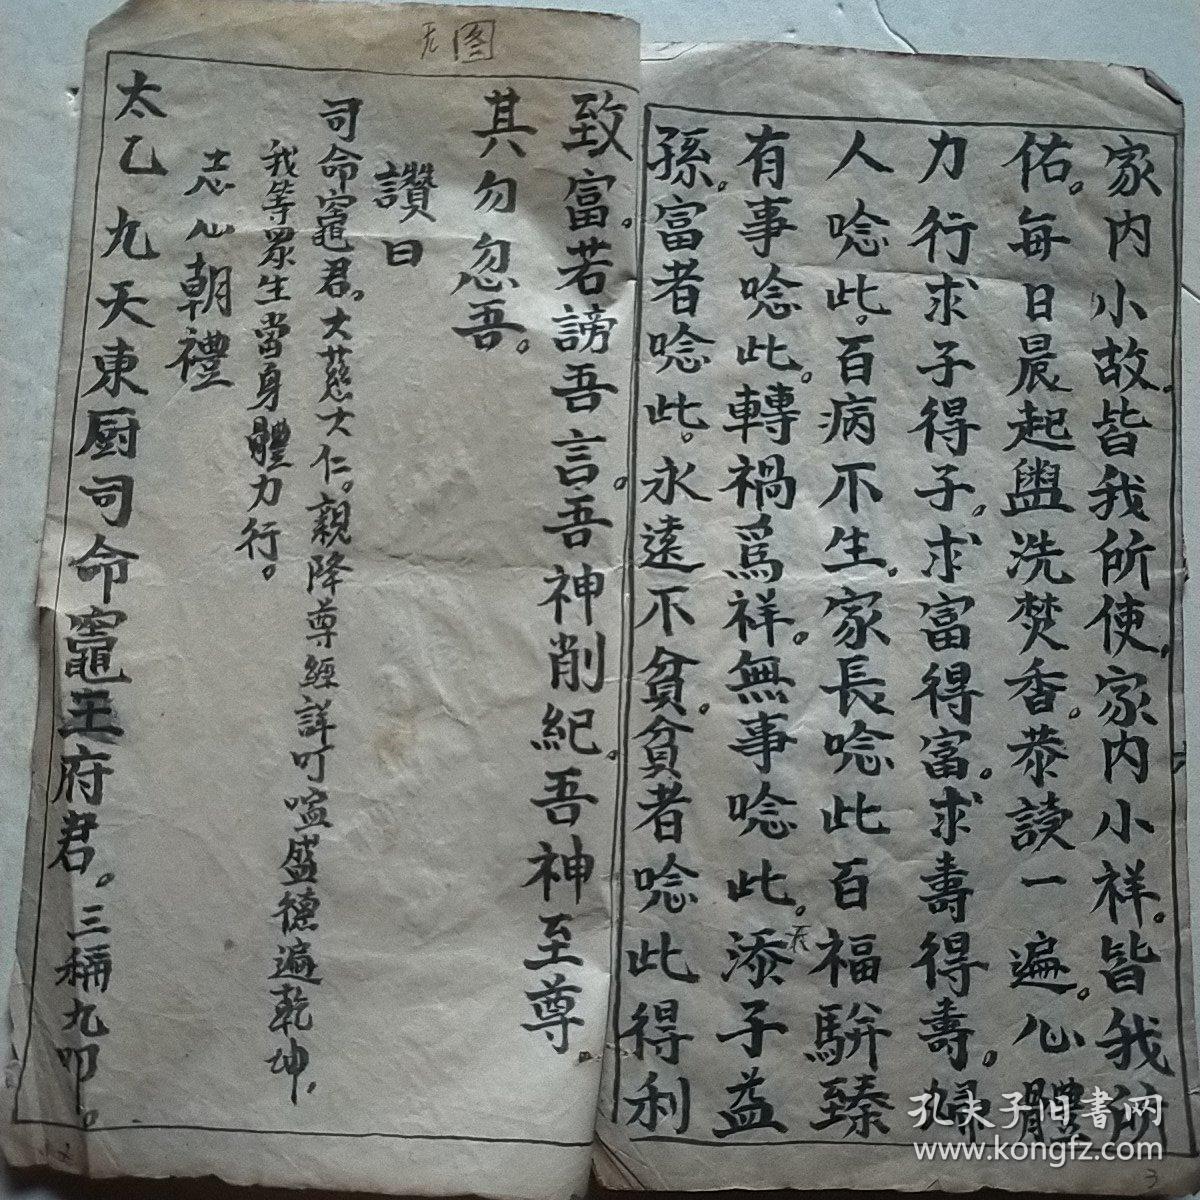 家内小故。皆我所使。家内小祥。皆我所
佑。每日晨起盥洗焚香。恭讀一遍。心體
力行求子得子。求富得富。求壽得壽。婦
人唸此。百病不生。家長唸此百福駢臻
有事唸此。轉禍爲祥。無事唸此。添子益
孫。富者唸此。永遠不貧。貧者唸此得利
无
致富。若謗吾言。吾神削紀。吾神至尊。
其勿忽吾。
讚曰
司命竈君。大慈大仁。親降尊經詳叮嚀盛德遍乾坤，
我等眾生當身體力行。
志心朝禮
太乙九天東厨司命竈王府君。三稱九叩。
无图
2
3
孔夫子旧书网
www.kongfz.com